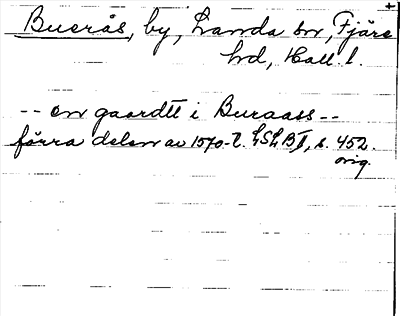 Buerås, by, Landa sn, Fjäre
hd, Hall. l.
-- en gaardtt i Buraass --
förra delen av 1570-t. LSLB II, s. 452.
orig.